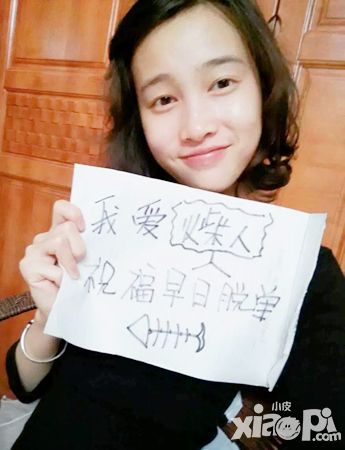 我爱火柴人
祝福早日脱单
小皮
xiaopi.com